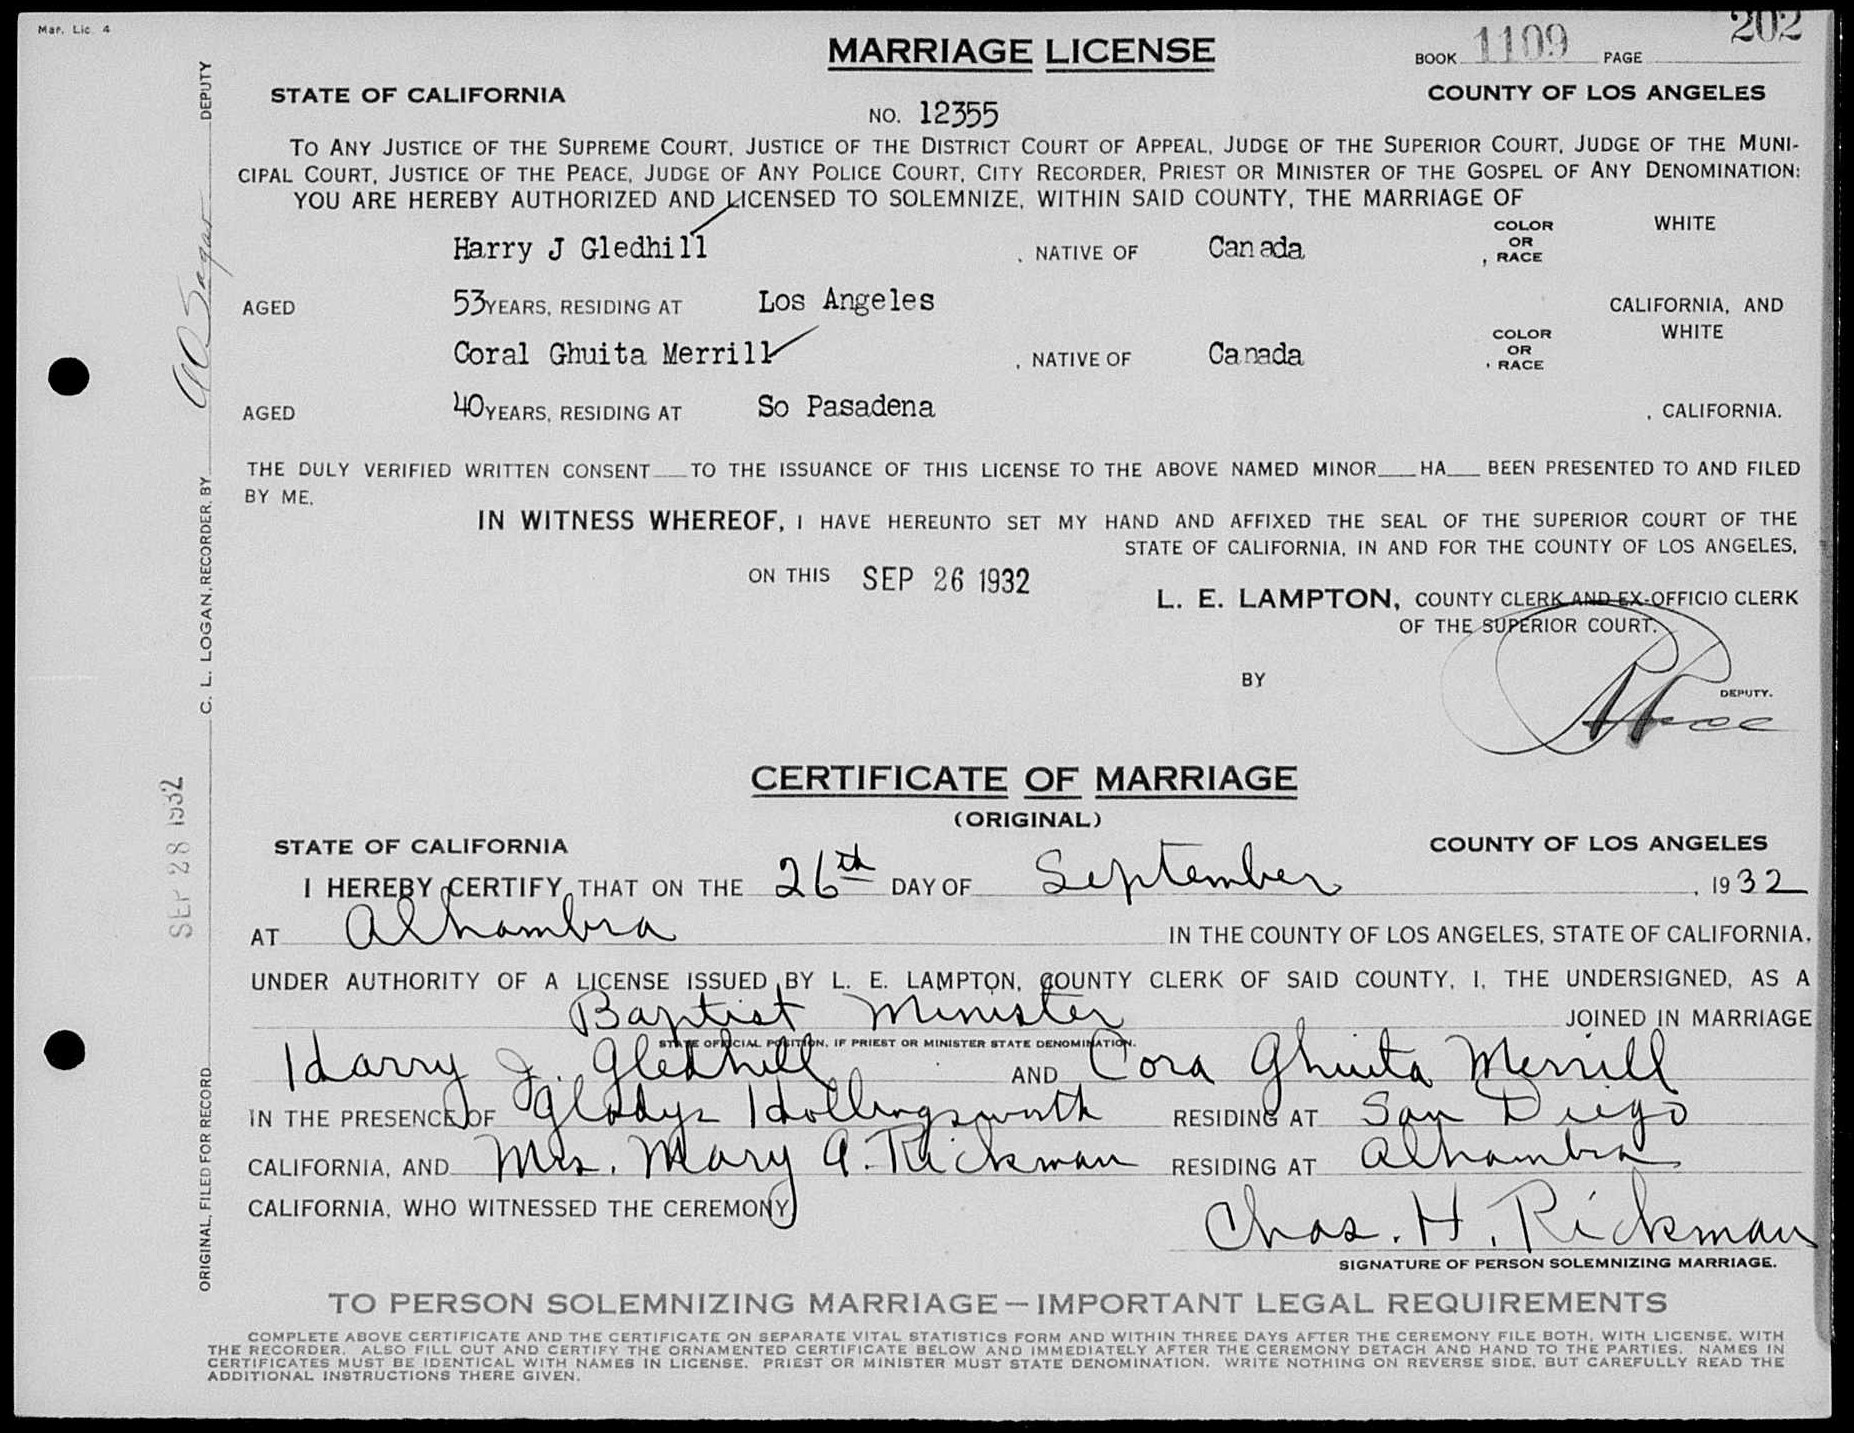 Mar. Lic. 4
202
MARRIAGE LICENSE
BOOK 1109 PAGE
STATE OF CALIFORNIA
COUNTY OF LOS ANGELES
NO. 12355
TO ANY JUSTICE OF THE SUPREME COURT, JUSTICE OF THE DISTRICT COURT OF APPEAL, JUDGE OF THE SUPERIOR COURT, JUDGE OF THE MUNI-
CIPAL COURT, JUSTICE OF THE PEACE, JUDGE OF ANY POLICE COURT, CITY RECORDER, PRIEST OR MINISTER OF THE GOSPEL OF ANY DENOMINATION:
YOU ARE HEREBY AUTHORIZED AND LICENSED TO SOLEMNIZE, WITHIN SAID COUNTY, THE MARRIAGE OF
Harry J Gledhill, NATIVE OF Canada, COLOR OR RACE WHITE
AGED 53 YEARS, RESIDING AT Los Angeles CALIFORNIA, AND
Coral Ghuita Merrill, NATIVE OF Canada, COLOR OR RACE WHITE
AGED 40 YEARS, RESIDING AT So Pasadena, CALIFORNIA.
THE DULY VERIFIED WRITTEN CONSENT__TO THE ISSUANCE OF THIS LICENSE TO THE ABOVE NAMED MINOR__HA__ BEEN PRESENTED TO AND FILED
BY ME.
IN WITNESS WHEREOF, I HAVE HEREUNTO SET MY HAND AND AFFIXED THE SEAL OF THE SUPERIOR COURT OF THE
STATE OF CALIFORNIA, IN AND FOR THE COUNTY OF LOS ANGELES,
ON THIS SEP 26 1932
L. E. LAMPTON, COUNTY CLERK AND EX-OFFICIO CLERK
OF THE SUPERIOR COURT.
BY
DEPUTY.
CERTIFICATE OF MARRIAGE
(ORIGINAL)
STATE OF CALIFORNIA
COUNTY OF LOS ANGELES
I HEREBY CERTIFY THAT ON THE 26th DAY OF September, 1932
AT Alhambra IN THE COUNTY OF LOS ANGELES, STATE OF CALIFORNIA,
UNDER AUTHORITY OF A LICENSE ISSUED BY L. E. LAMPTON, COUNTY CLERK OF SAID COUNTY, I, THE UNDERSIGNED, AS A
Baptist Minister JOINED IN MARRIAGE
STATE OFFICIAL POSITION, IF PRIEST OR MINISTER STATE DENOMINATION.
Harry J. Gledhill AND Cora Ghuita Merrill
IN THE PRESENCE OF Gladys Hollingsworth RESIDING AT San Diego
CALIFORNIA, AND Mrs. Mary A. Rickman RESIDING AT Alhambra
CALIFORNIA, WHO WITNESSED THE CEREMONY
Chas. H. Rickman
SIGNATURE OF PERSON SOLEMNIZING MARRIAGE.
TO PERSON SOLEMNIZING MARRIAGE—IMPORTANT LEGAL REQUIREMENTS
COMPLETE ABOVE CERTIFICATE AND THE CERTIFICATE ON SEPARATE VITAL STATISTICS FORM AND WITHIN THREE DAYS AFTER THE CEREMONY FILE BOTH, WITH LICENSE, WITH
THE RECORDER. ALSO FILL OUT AND CERTIFY THE ORNAMENTED CERTIFICATE BELOW AND IMMEDIATELY AFTER THE CEREMONY DETACH AND HAND TO THE PARTIES. NAMES IN
CERTIFICATES MUST BE IDENTICAL WITH NAMES IN LICENSE. PRIEST OR MINISTER MUST STATE DENOMINATION. WRITE NOTHING ON REVERSE SIDE, BUT CAREFULLY READ THE
ADDITIONAL INSTRUCTIONS THERE GIVEN.
ORIGINAL, FILED FOR RECORD SEP 28 1932 C. L. LOGAN, RECORDER, BY DEPUTY